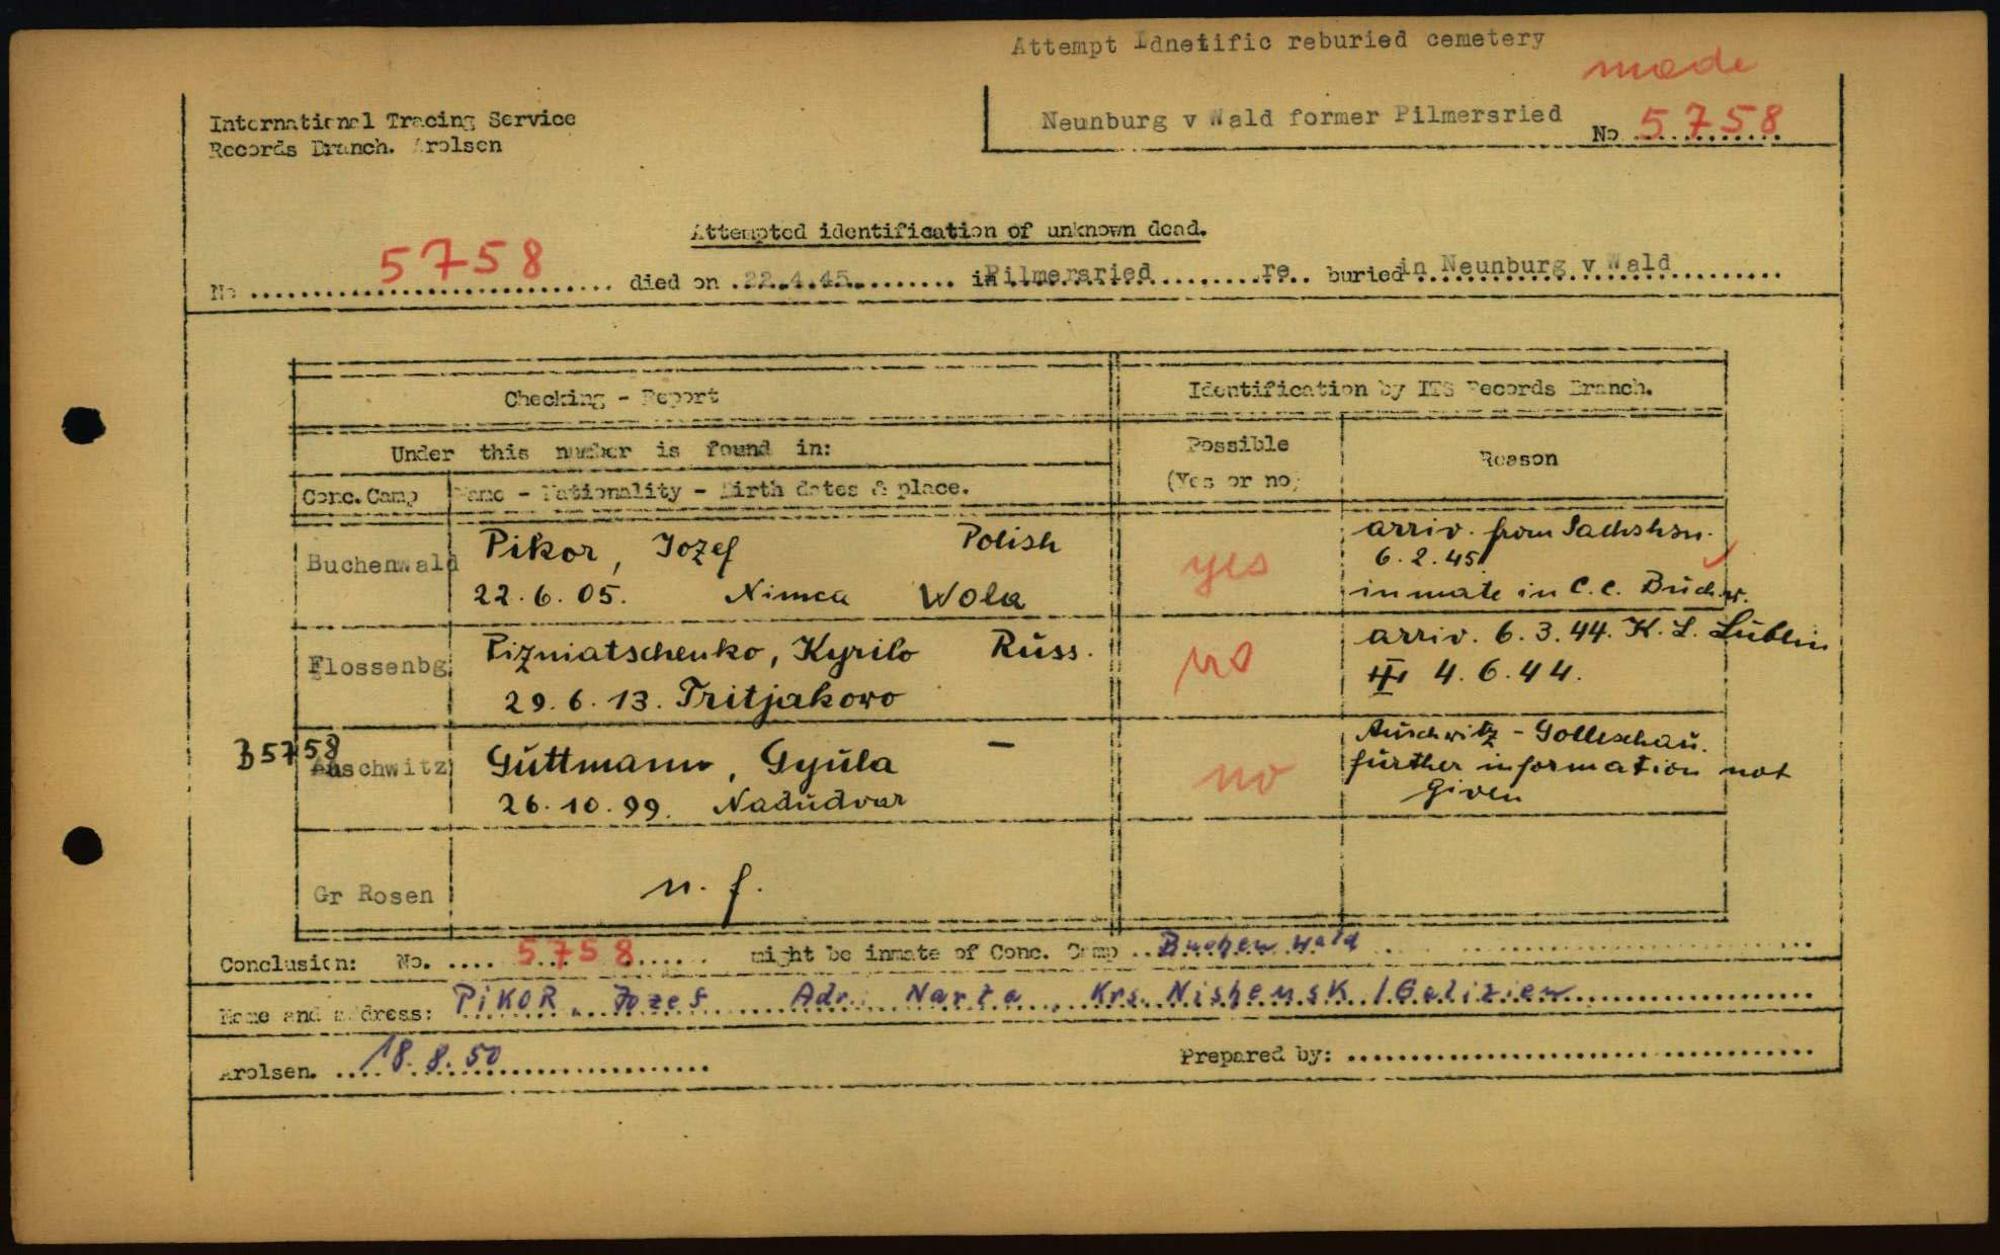 Attempt Idnetific reburied cemetery
made
International Tracing Service
Records Branch. Arolsen
Neunburg v Wald former Pilmersried No 5758
Attempted identification of unknown dead.
No 5758 died on 22.4.45. in Pilmersried re buried in Neunburg v Wald
Checking - Report
Identification by ITS Records Branch.
Under this number is found in:
Possible (Yes or no)
Reason
Conc. Camp
Name - Nationality - Birth dates & place.
Buchenwald
Pikor, Jozef Polish
22.6.05. Nimca Wola
yes
arriv. from Sachshsn.
6.2.45
inmate in C.C. Buchw.
Flossenbg
Pizniatschenko, Kyrilo Russ.
29.6.13. Tritjakowo
no
arriv. 6.3.44. K.L. Lublin
4.6.44.
B5758
Auschwitz
Guttmann, Gyula -
26.10.99. Nadudvar
no
Auschwitz - Golleschau.
further information not
given
Gr Rosen
n. f.
Conclusion: No. 5758 might be inmate of Conc. Camp Buchenwald
Name and address: PiKOR, Jozef Adr. Narta, Krs. Nishensk / Galizien
Arolsen. 18.8.50
Prepared by: